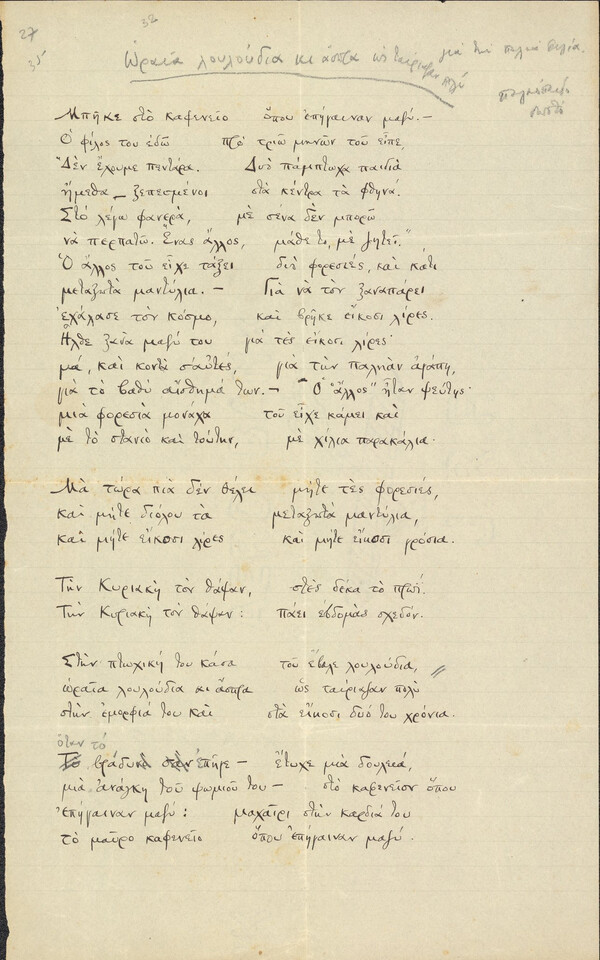 27
32
35
Ὡραῖα λουλούδια κι ἄσπρα ὡς ταίριαζαν πολύ
Μπῆκε στὸ καφενεῖο ὅπου ἐπήγαιναν μαζύ. —
Ὁ φίλος του ἐδῶ πρὸ τριῶ μηνῶν τοῦ εἶπε,
"Δὲν ἔχουμε πεντάρα. Δυὸ πάμπτωχα παιδιὰ
ἤμεθα — ξεπεσμένοι στὰ κέντρα τὰ φθηνά.
Στὸ λέγω φανερὰ, μὲ σένα δὲν μπορῶ
νὰ περπατῶ. Ἕνας ἄλλος, μάθε το, μὲ ζητεῖ."
Ὁ ἄλλος τοῦ εἶχε τάξει δυὸ φορεσιές, καὶ κάτι
μεταξωτὰ μαντύλια. — Γιὰ νὰ τὸν ξαναπάρει
ἐχάλασε τὸν κόσμο, καὶ βρῆκε εἴκοσι λίρες.
Ἦλθε ξανὰ μαζύ του γιὰ τὲς εἴκοσι λίρες·
μά, καὶ κοντὰ σ'αὐτές, γιὰ τὴν παληὰν ἀγάπη,
γιὰ τὸ βαθὺ αἴσθημά των. — Ὁ "ἄλλος" ἦταν ψεύτης·
μιὰ φορεσιὰ μονάχα τοῦ εἶχε κάμει καὶ
μὲ τὸ στανιὸ καὶ τούτην, μὲ χίλια παρακάλια.
Μὰ τώρα πιὰ δὲν θέλει μήτε τὲς φορεσιές,
καὶ μήτε διόλου τὰ μεταξωτὰ μαντύλια,
καὶ μήτε εἴκοσι λίρες καὶ μήτε εἴκοσι γρόσια.
Τὴν Κυριακὴ τὸν θάψαν, στὲς δέκα τὸ πρωΐ.
Τὴν Κυριακὴ τὸν θάψαν: πάει ἑβδομὰς σχεδόν.
Στὴν πτωχική του κάσα τοῦ ἔβαλε λουλούδια,
ὡραῖα λουλούδια κι ἄσπρα ὡς ταίριαζαν πολύ
στὴν ἐμορφιά του καὶ στὰ εἴκοσι δυό του χρόνια.
ὅταν τὸ
Τὸ βράδυ ἐπῆγε — ἔτυχε μιὰ δουλειά,
μιὰ ἀνάγκη τοῦ ψωμιοῦ του — στὸ καφενεῖον ὅπου
ἐπήγαιναν μαζύ: μαχαῖρι στὴν καρδιά του
τὸ μαῦρο καφενεῖο ὅπου ἐπήγαιναν μαζύ.